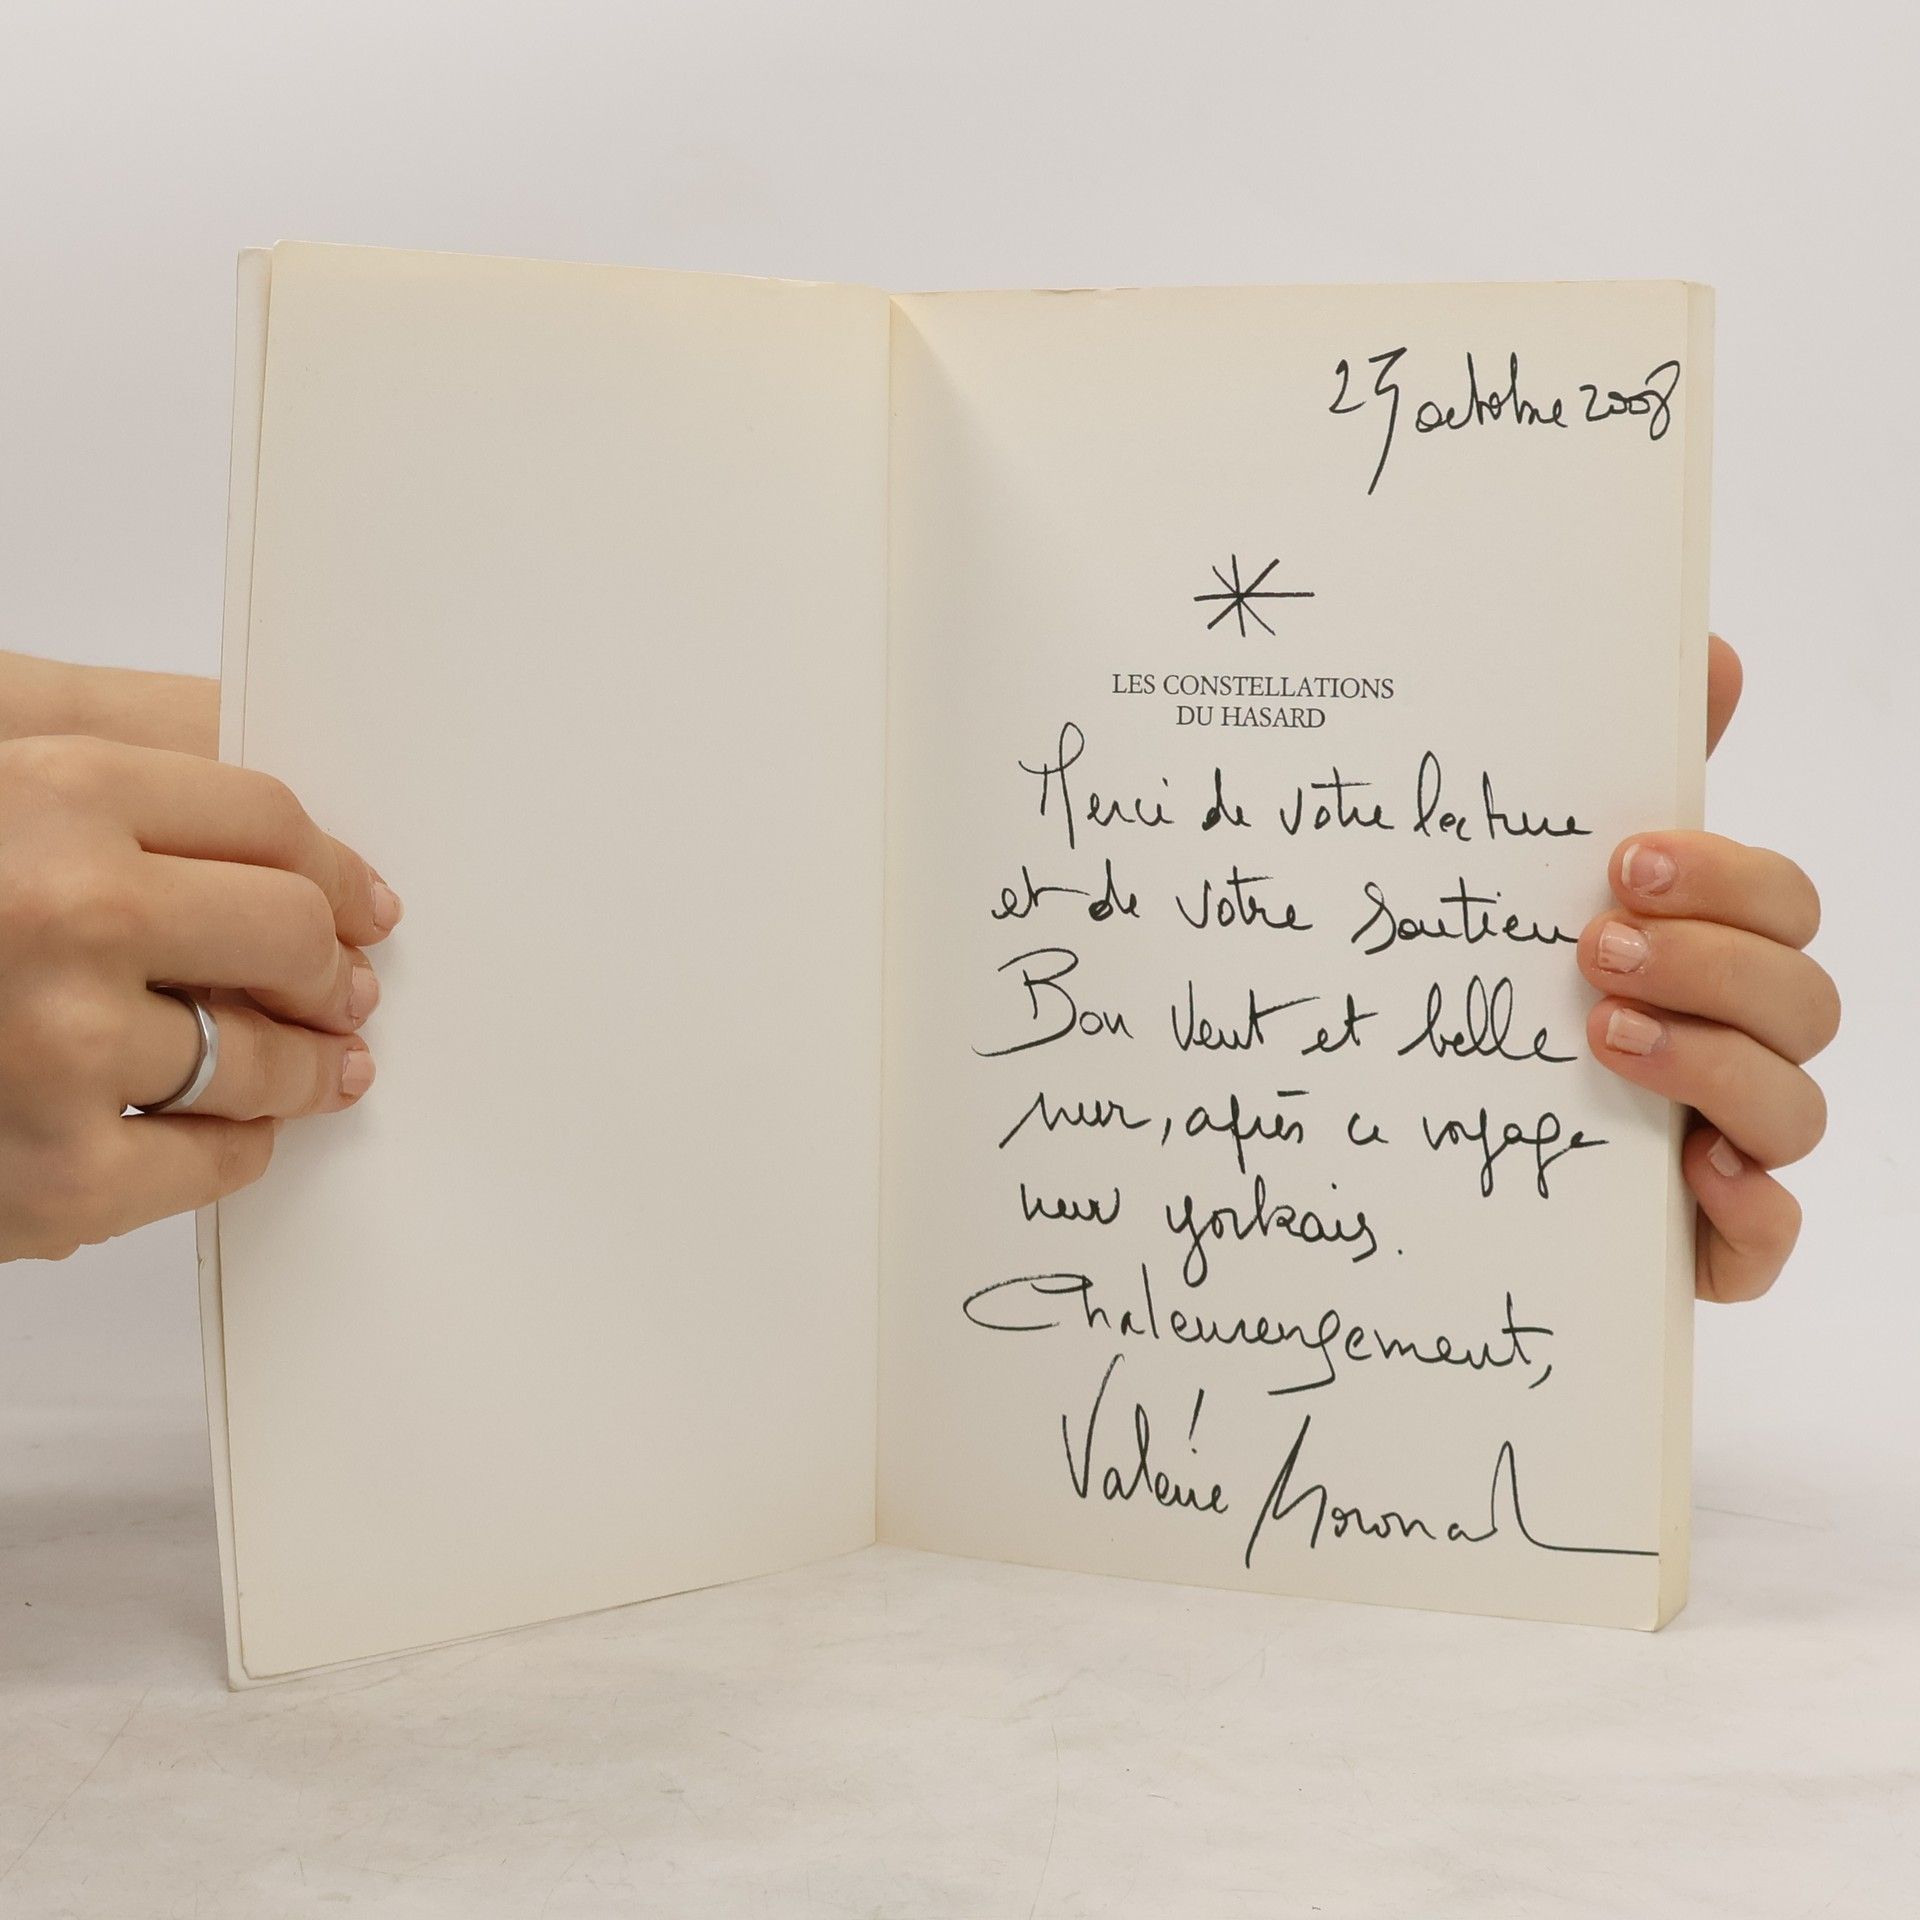 25 octobre 2008
LES CONSTELLATIONS
DU HASARD
Merci de votre lecture
et de votre soutien
Bon vent et belle
mer, après ce voyage
new yorkais.
Chaleureusement,
Valérie